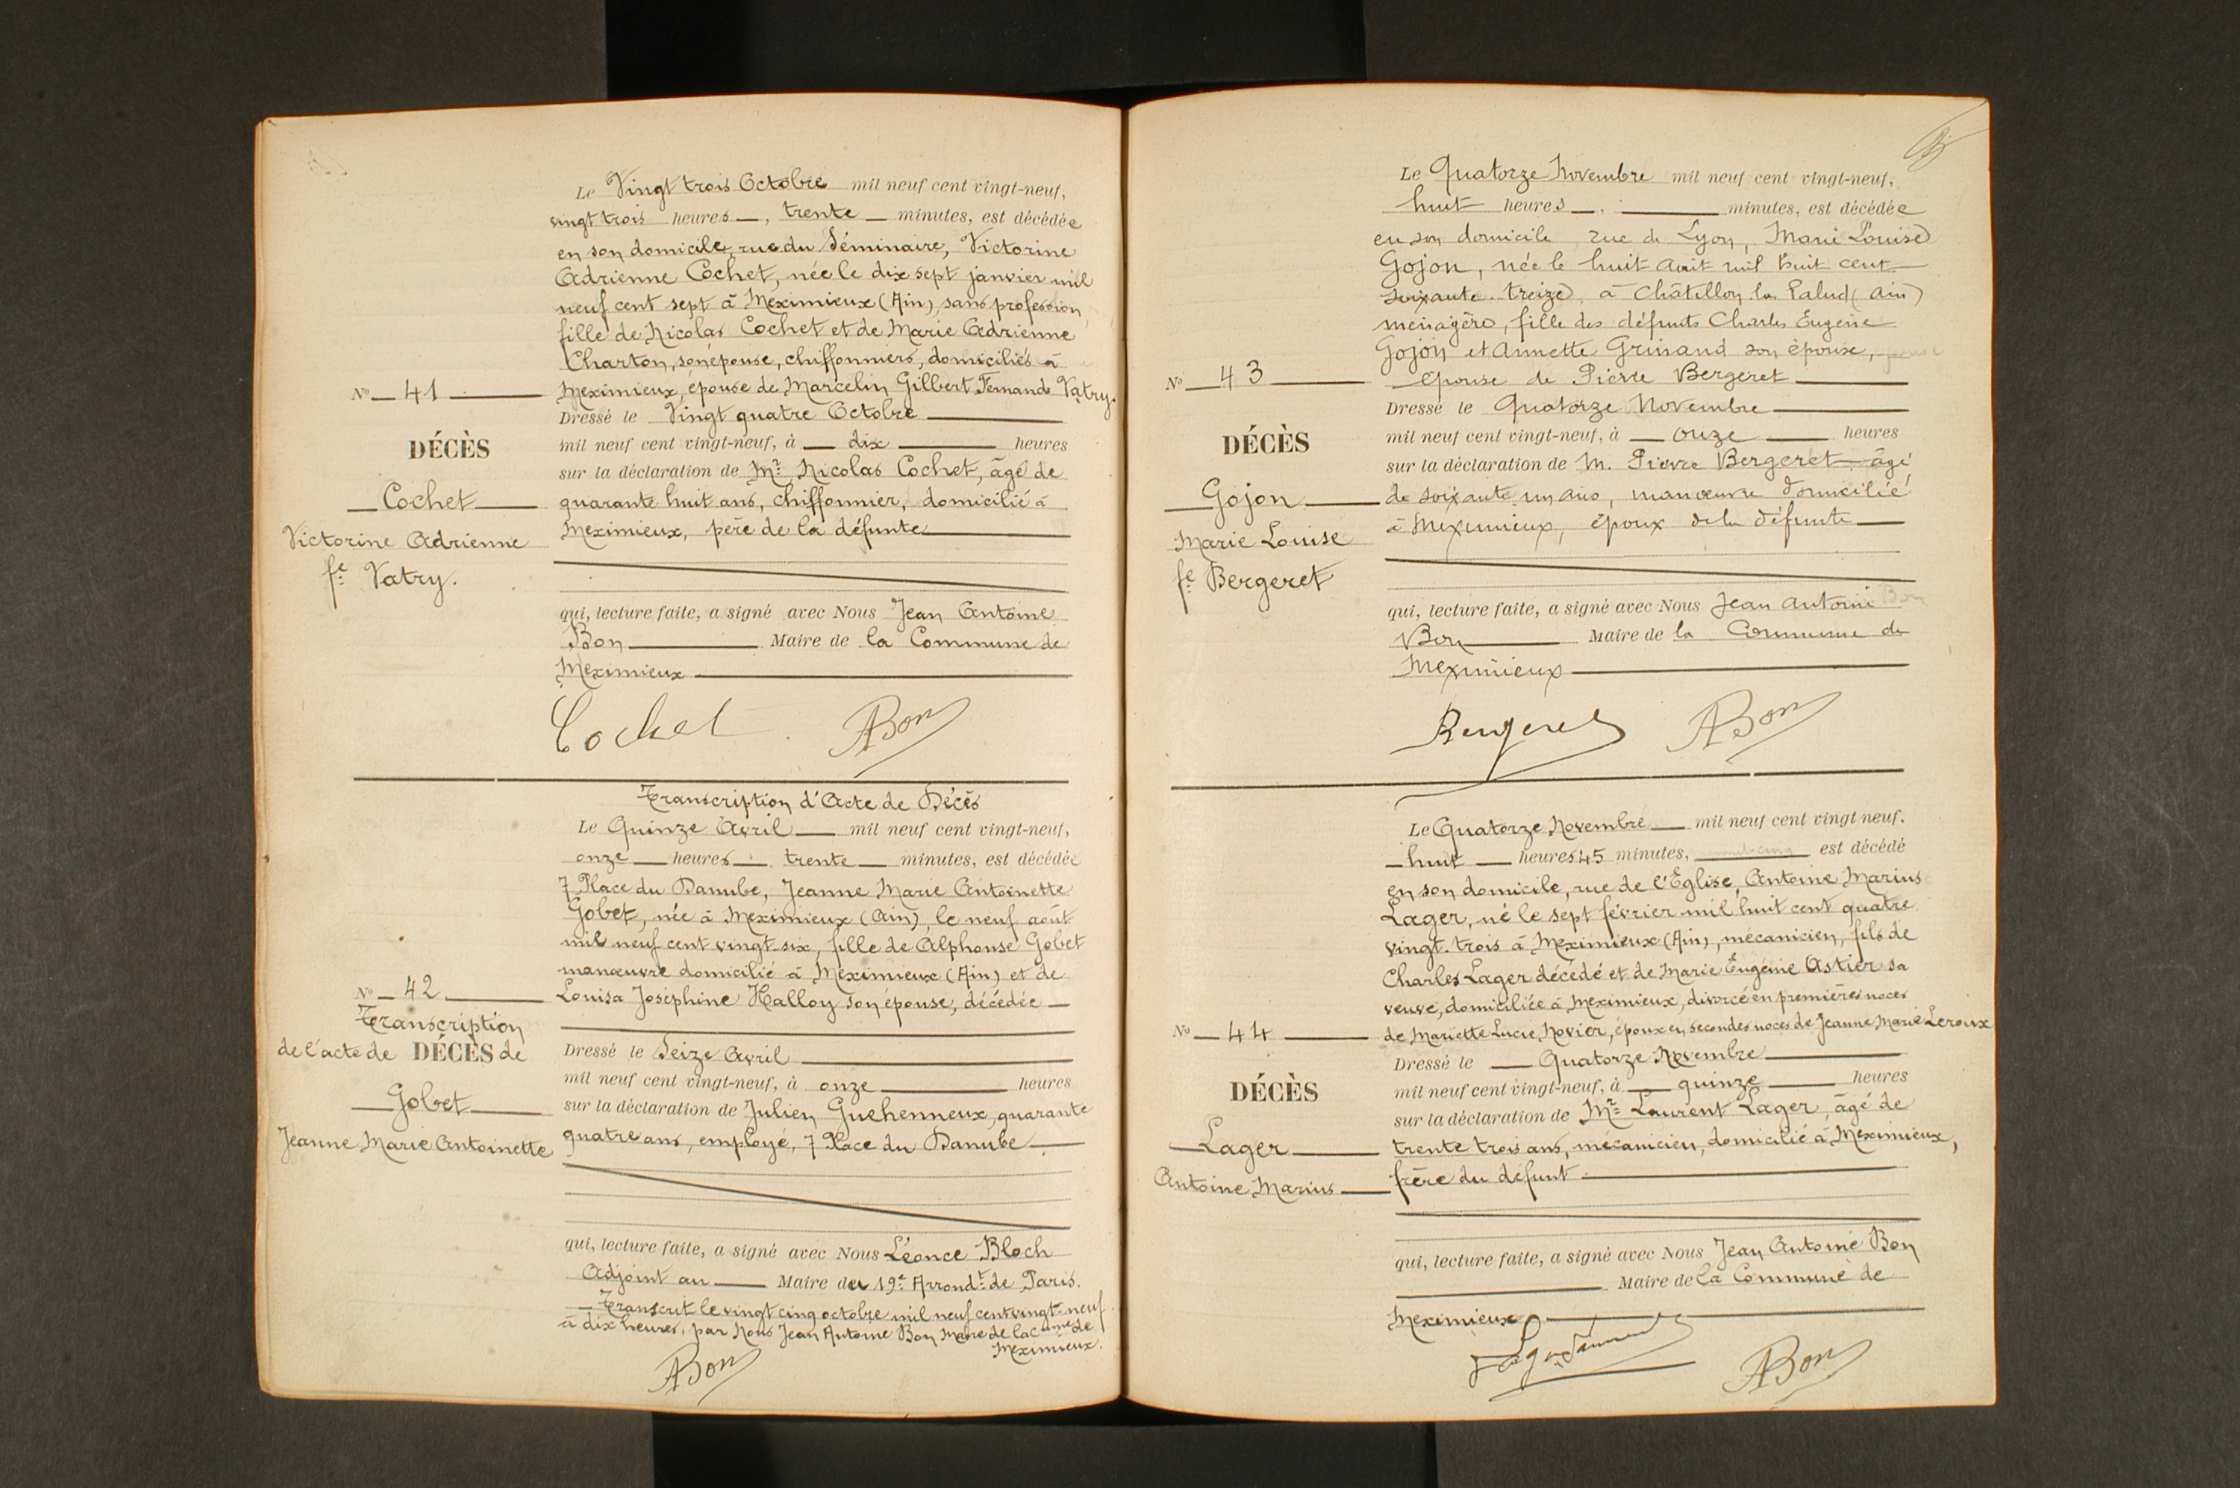 Le Vingt trois Octobre mil neuf cent vingt-neuf,
vingt trois heures, trente minutes, est décédée
en son domicile, rue du Séminaire, Victorine
Adrienne Cochet, née le dix sept janvier mil
neuf cent sept à Meximieux (Ain), sans profession,
fille de Nicolas Cochet et de Marie Adrienne
Charton, son épouse, chiffonniers, domiciliés à
Meximieux, épouse de Marcelin Gilbert Fernand Vatry.
No 41
Dressé le Vingt quatre Octobre
mil neuf cent vingt-neuf, à dix heures
DÉCÈS
sur la déclaration de Mr Nicolas Cochet, âgé de
Cochet
quarante huit ans, chiffonnier, domicilié à
Victorine Adrienne
Meximieux, père de la défunte
fe Vatry.
qui, lecture faite, a signé avec Nous Jean Antoine
Bon Maire de la Commune de
Meximieux
Cochet ABon
Transcription d'Acte de Décès
Le Quinze Avril mil neuf cent vingt-neuf,
onze heures trente minutes, est décédée
7 Place du Danube, Jeanne Marie Antoinette
Gobet, née à Meximieux (Ain), le neuf août
mil neuf cent vingt-six, fille de Alphonse Gobet
manœuvre domicilié à Meximieux (Ain) et de
No 42
Louisa Joséphine Halloy son épouse, décédée
Transcription
de l'acte de DÉCÈS de
Dressé le Seize Avril
mil neuf cent vingt-neuf, à onze heures
Gobet
sur la déclaration de Julien Guehenneux, quarante
Jeanne Marie Antoinette
quatre ans, employé, 7 Place du Danube
qui, lecture faite, a signé avec Nous Léonce Bloch
Adjoint au Maire du 19e Arrondt de Paris.
Transcrit le vingt cinq octobre mil neuf cent vingt-neuf
à dix heures, par Nous Jean Antoine Bon Maire de la cne de
Meximieux.
ABon
Le Quatorze Novembre mil neuf cent vingt-neuf,
huit heures, minutes, est décédée
en son domicile rue de Lyon, Marie Louise
Gojon, née le huit Août mil huit cent
soixante treize, à Châtillon la Palud (Ain)
ménagère, fille des défunts Charles Eugène
Gojon et Annette Grinand son épouse,
No 43
épouse de Pierre Bergeret
Dressé le Quatorze Novembre
DÉCÈS
mil neuf cent vingt-neuf, à onze heures
sur la déclaration de M. Pierre Bergeret âgé
Gojon
de soixante un ans, manœuvre domicilié
Marie Louise
à Meximieux, époux de la défunte
fe Bergeret
qui, lecture faite, a signé avec Nous Jean Antoine
Bon Maire de la Commune de
Meximieux
Bergeret ABon
Le Quatorze Novembre mil neuf cent vingt neuf.
huit heures 45 minutes, est décédé
en son domicile, rue de l'Eglise, Antoine Marius
Lager, né le sept février mil huit cent quatre
vingt-trois à Meximieux (Ain), mécanicien, fils de
Charles Lager décédé et de Marie Eugénie Astier sa
veuve, domiciliée à Meximieux, divorcé en premières noces
No 44
de Mariette Lucie Novier, époux en secondes noces de Jeanne Marie Leroux
Dressé le Quatorze Novembre
DÉCÈS
mil neuf cent vingt-neuf, à quinze heures
sur la déclaration de Mr Laurent Lager, âgé de
Lager
trente trois ans, mécanicien, domicilié à Meximieux,
Antoine Marius
frère du défunt
qui, lecture faite, a signé avec Nous Jean Antoine Bon
Maire de la Commune de
Meximieux
ABon